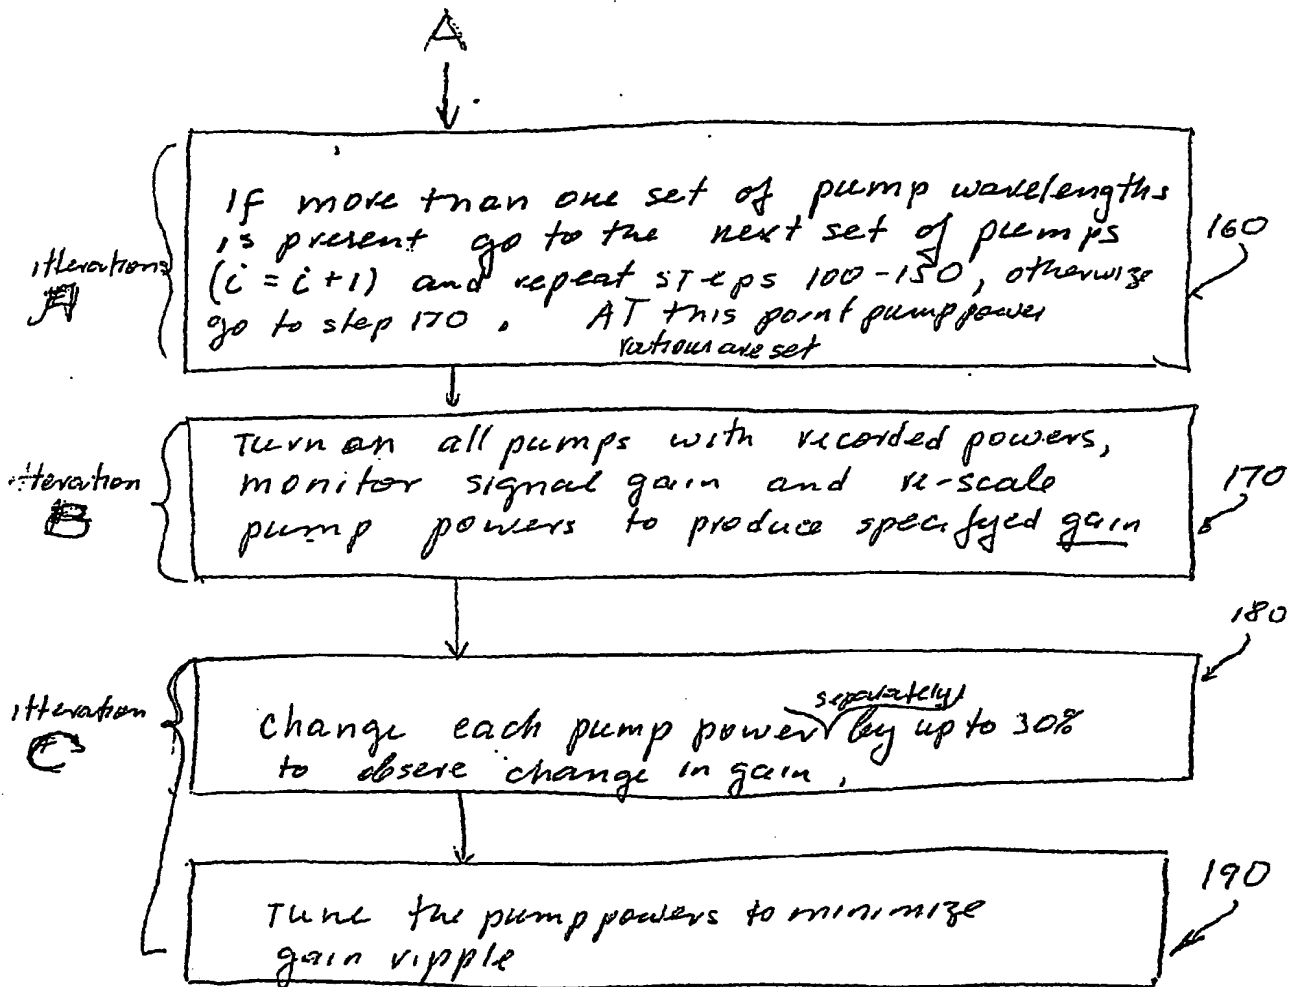 A
If more than one set of pump wavelengths
is present go to the next set of pumps
(i = i +1) and repeat steps 100-150, otherwize
go to step 170. AT this point pump power
rations are set
itterations
A
160
Turn on all pumps with recorded powers,
monitor signal gain and re-scale
pump powers to produce specifyed gain
itteration
B
170
180
separately
change each pump power by up to 30%
to obsere change in gain.
itteration
C
Tune the pump powers to minimize
gain ripple
190